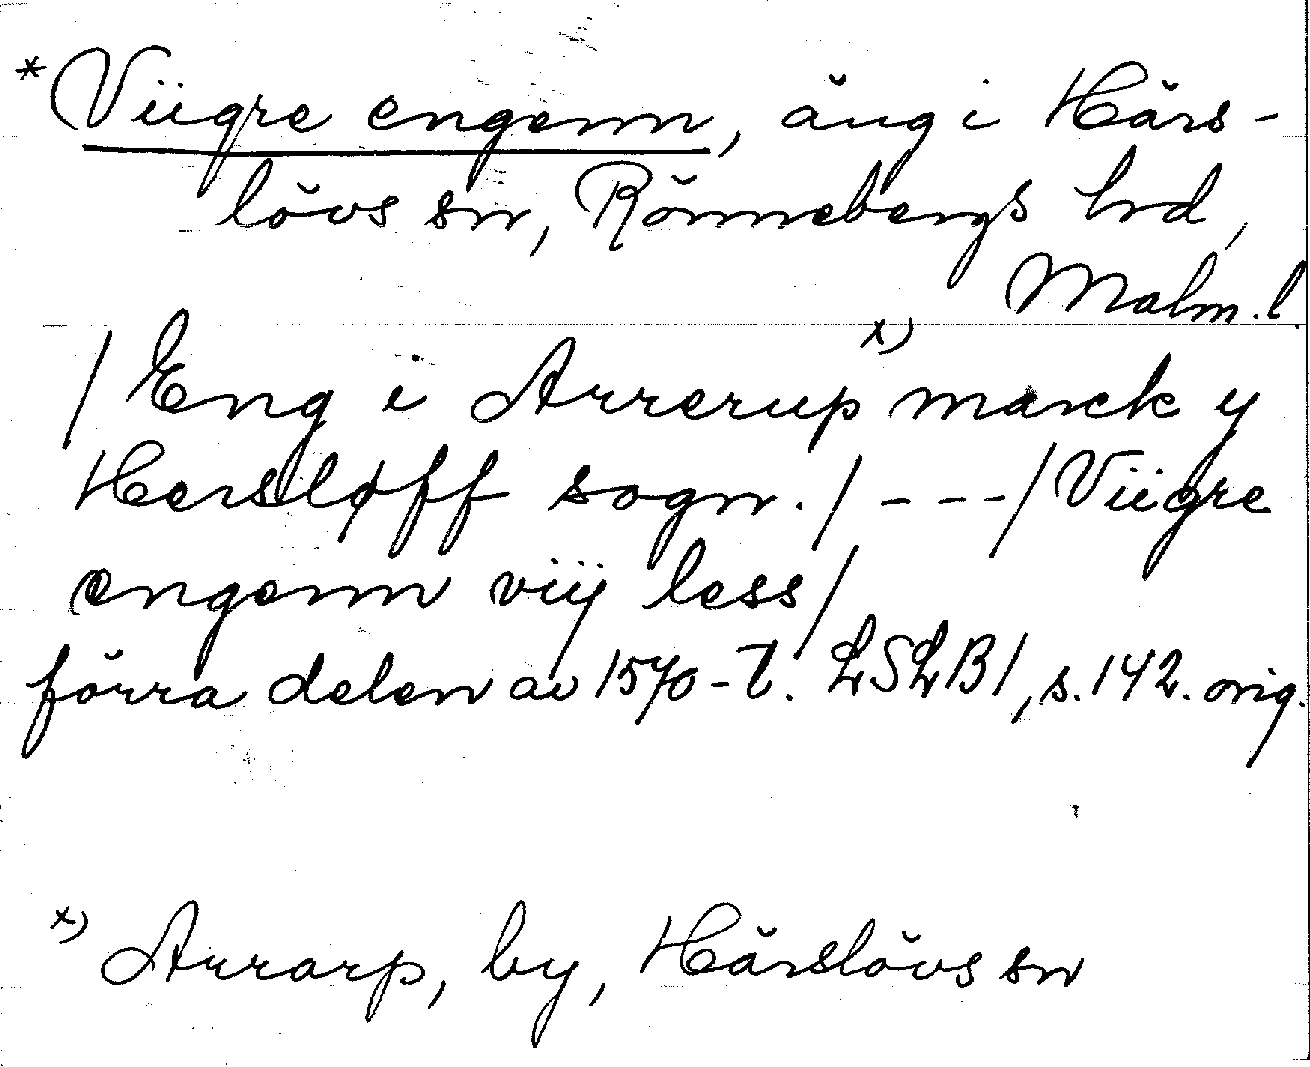 * Viigre engenn, äng i Härs-
lövs sn, Rönnebergs hrd,
Malm. l.
/ Eng i Arrerup x) marck y
Hersløff sogn. / - - - / Viigre
engenn viij less /
förra delen av 1570-t. LSLB1, s. 142. orig.
x) Arrarp, by, Härslövs sn